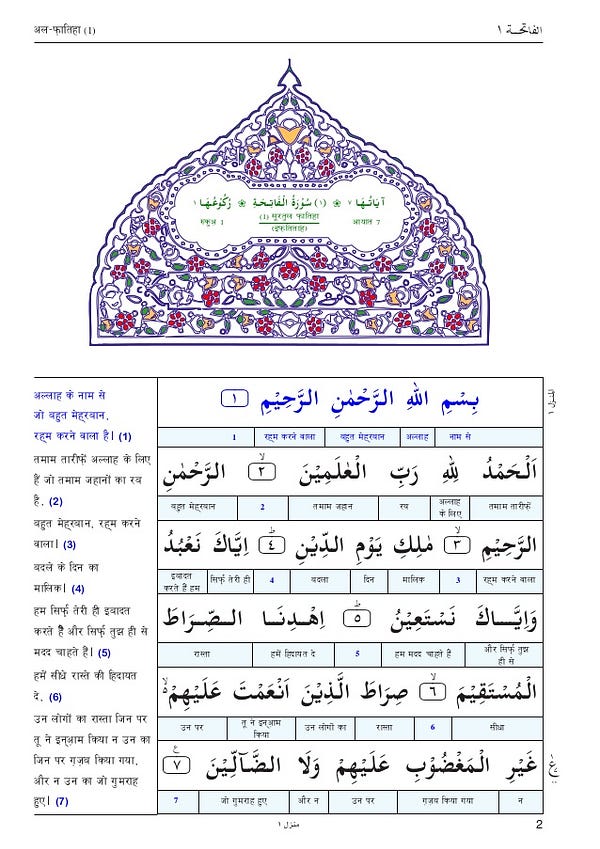 अल-फ़ातिहा (1)
الفاتحة ١
اٰيَاتُـهَا ٧ ❀ (١) سُوۡرَةُ الۡفَاتِحَةِ ❀ رُكُوۡعُهَا ١
रुकूअ 1
(1) सूरतुल फ़ातिहा
आयात 7
अल्लाह के नाम से
जो बहुत मेहरबान,
रह्म करने वाला है। (1)
तमाम तारीफ़ें अल्लाह के लिए
हैं जो तमाम जहानों का रब
है. (2)
बहुत मेहरबान, रह्म करने
वाला। (3)
बदले के दिन का
मालिक। (4)
हम सिर्फ़ तेरी ही इबादत
करते हैं और सिर्फ़ तुझ ही से
मदद चाहते हैं। (5)
हमें सीधे रास्ते की हिदायत
दे. (6)
उन लोगों का रास्ता जिन पर
तू ने इन्आम किया न उन का
जिन पर ग़ज़ब किया गया,
और न उन का जो गुमराह
हुए। (7)
بِسۡمِ اللهِ الرَّحۡمٰنِ الرَّحِيۡمِ ١
1 रह्म करने वाला बहुत मेहरबान अल्लाह नाम से
اَلۡحَمۡدُ لِلّٰهِ رَبِّ الۡعٰلَمِيۡنَ ۙ ٢ الرَّحۡمٰنِ
बहुत मेहरबान 2 तमाम जहान रब अल्लाह के लिए तमाम तारीफ़ें
الرَّحِيۡمِ ۙ ٣ مٰلِكِ يَوۡمِ الدِّيۡنِ ؕ ٤ اِيَّاكَ نَعۡبُدُ
इबादत करते हैं हम सिर्फ़ तेरी ही 4 बदला दिन मालिक 3 रह्म करने वाला
وَاِيَّـاكَ نَسۡتَعِيۡنُ ؕ ٥ اِهۡدِنَـا الصِّـرَاطَ
रास्ता हमें हिदायत दे 5 हम मदद चाहते हैं और सिर्फ़ तुझ ही से
الۡمُسۡتَقِيۡمَ ۙ ٦ صِرَاطَ الَّذِيۡنَ اَنۡعَمۡتَ عَلَيۡهِمۡ ۙ
उन पर तू ने इन्आम किया उन लोगों का रास्ता 6 सीधा
غَيۡرِ الۡمَغۡضُوۡبِ عَلَيۡهِمۡ وَلَا الضَّآلِّيۡنَ ٧
7 जो गुमराह हुए और न उन पर ग़ज़ब किया गया न
منزل ١
2